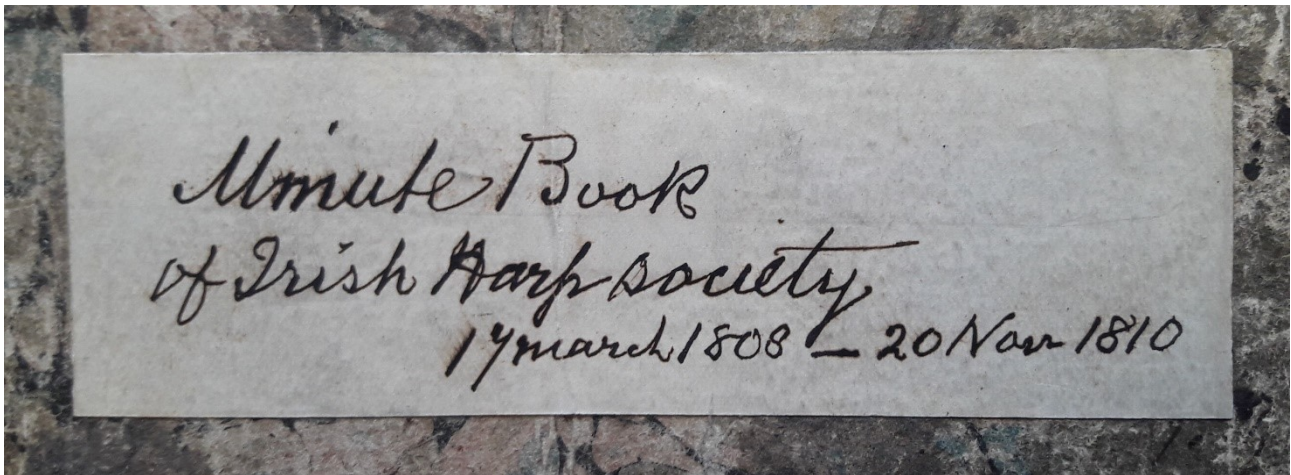 Minute Book
of Irish Harp society
17 march 1808 — 20 Nov 1810